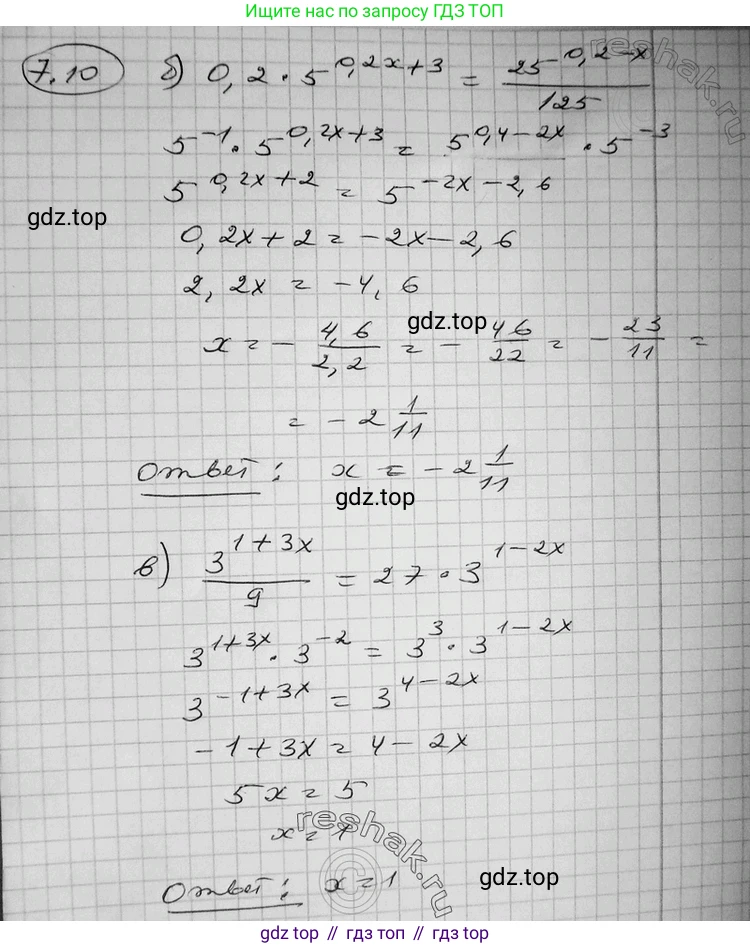 Ищите нас по запросу ГДЗ ТОП
7.10 б) 0,2 · 5^(0,2x+3) = 25^(0,2-x) / 125
reshak.ru
5^(-1) · 5^(0,2x+3) = 5^(0,4-2x) · 5^(-3)
5^(0,2x+2) = 5^(-2x-2,6)
gdz.top
0,2x+2 = -2x-2,6
2,2x = -4,6
gdz.top
x = - 4,6/2,2 = - 46/22 = - 23/11 =
= -2 1/11
Ответ: x = -2 1/11
gdz.top
в) 3^(1+3x) / 9 = 27 · 3^(1-2x)
3^(1+3x) · 3^(-2) = 3^3 · 3^(1-2x)
3^(-1+3x) = 3^(4-2x)
-1+3x = 4-2x
5x = 5
x = 1
reshak.ru
Ответ: x = 1
gdz.top
gdz top // гдз топ // gdz.top